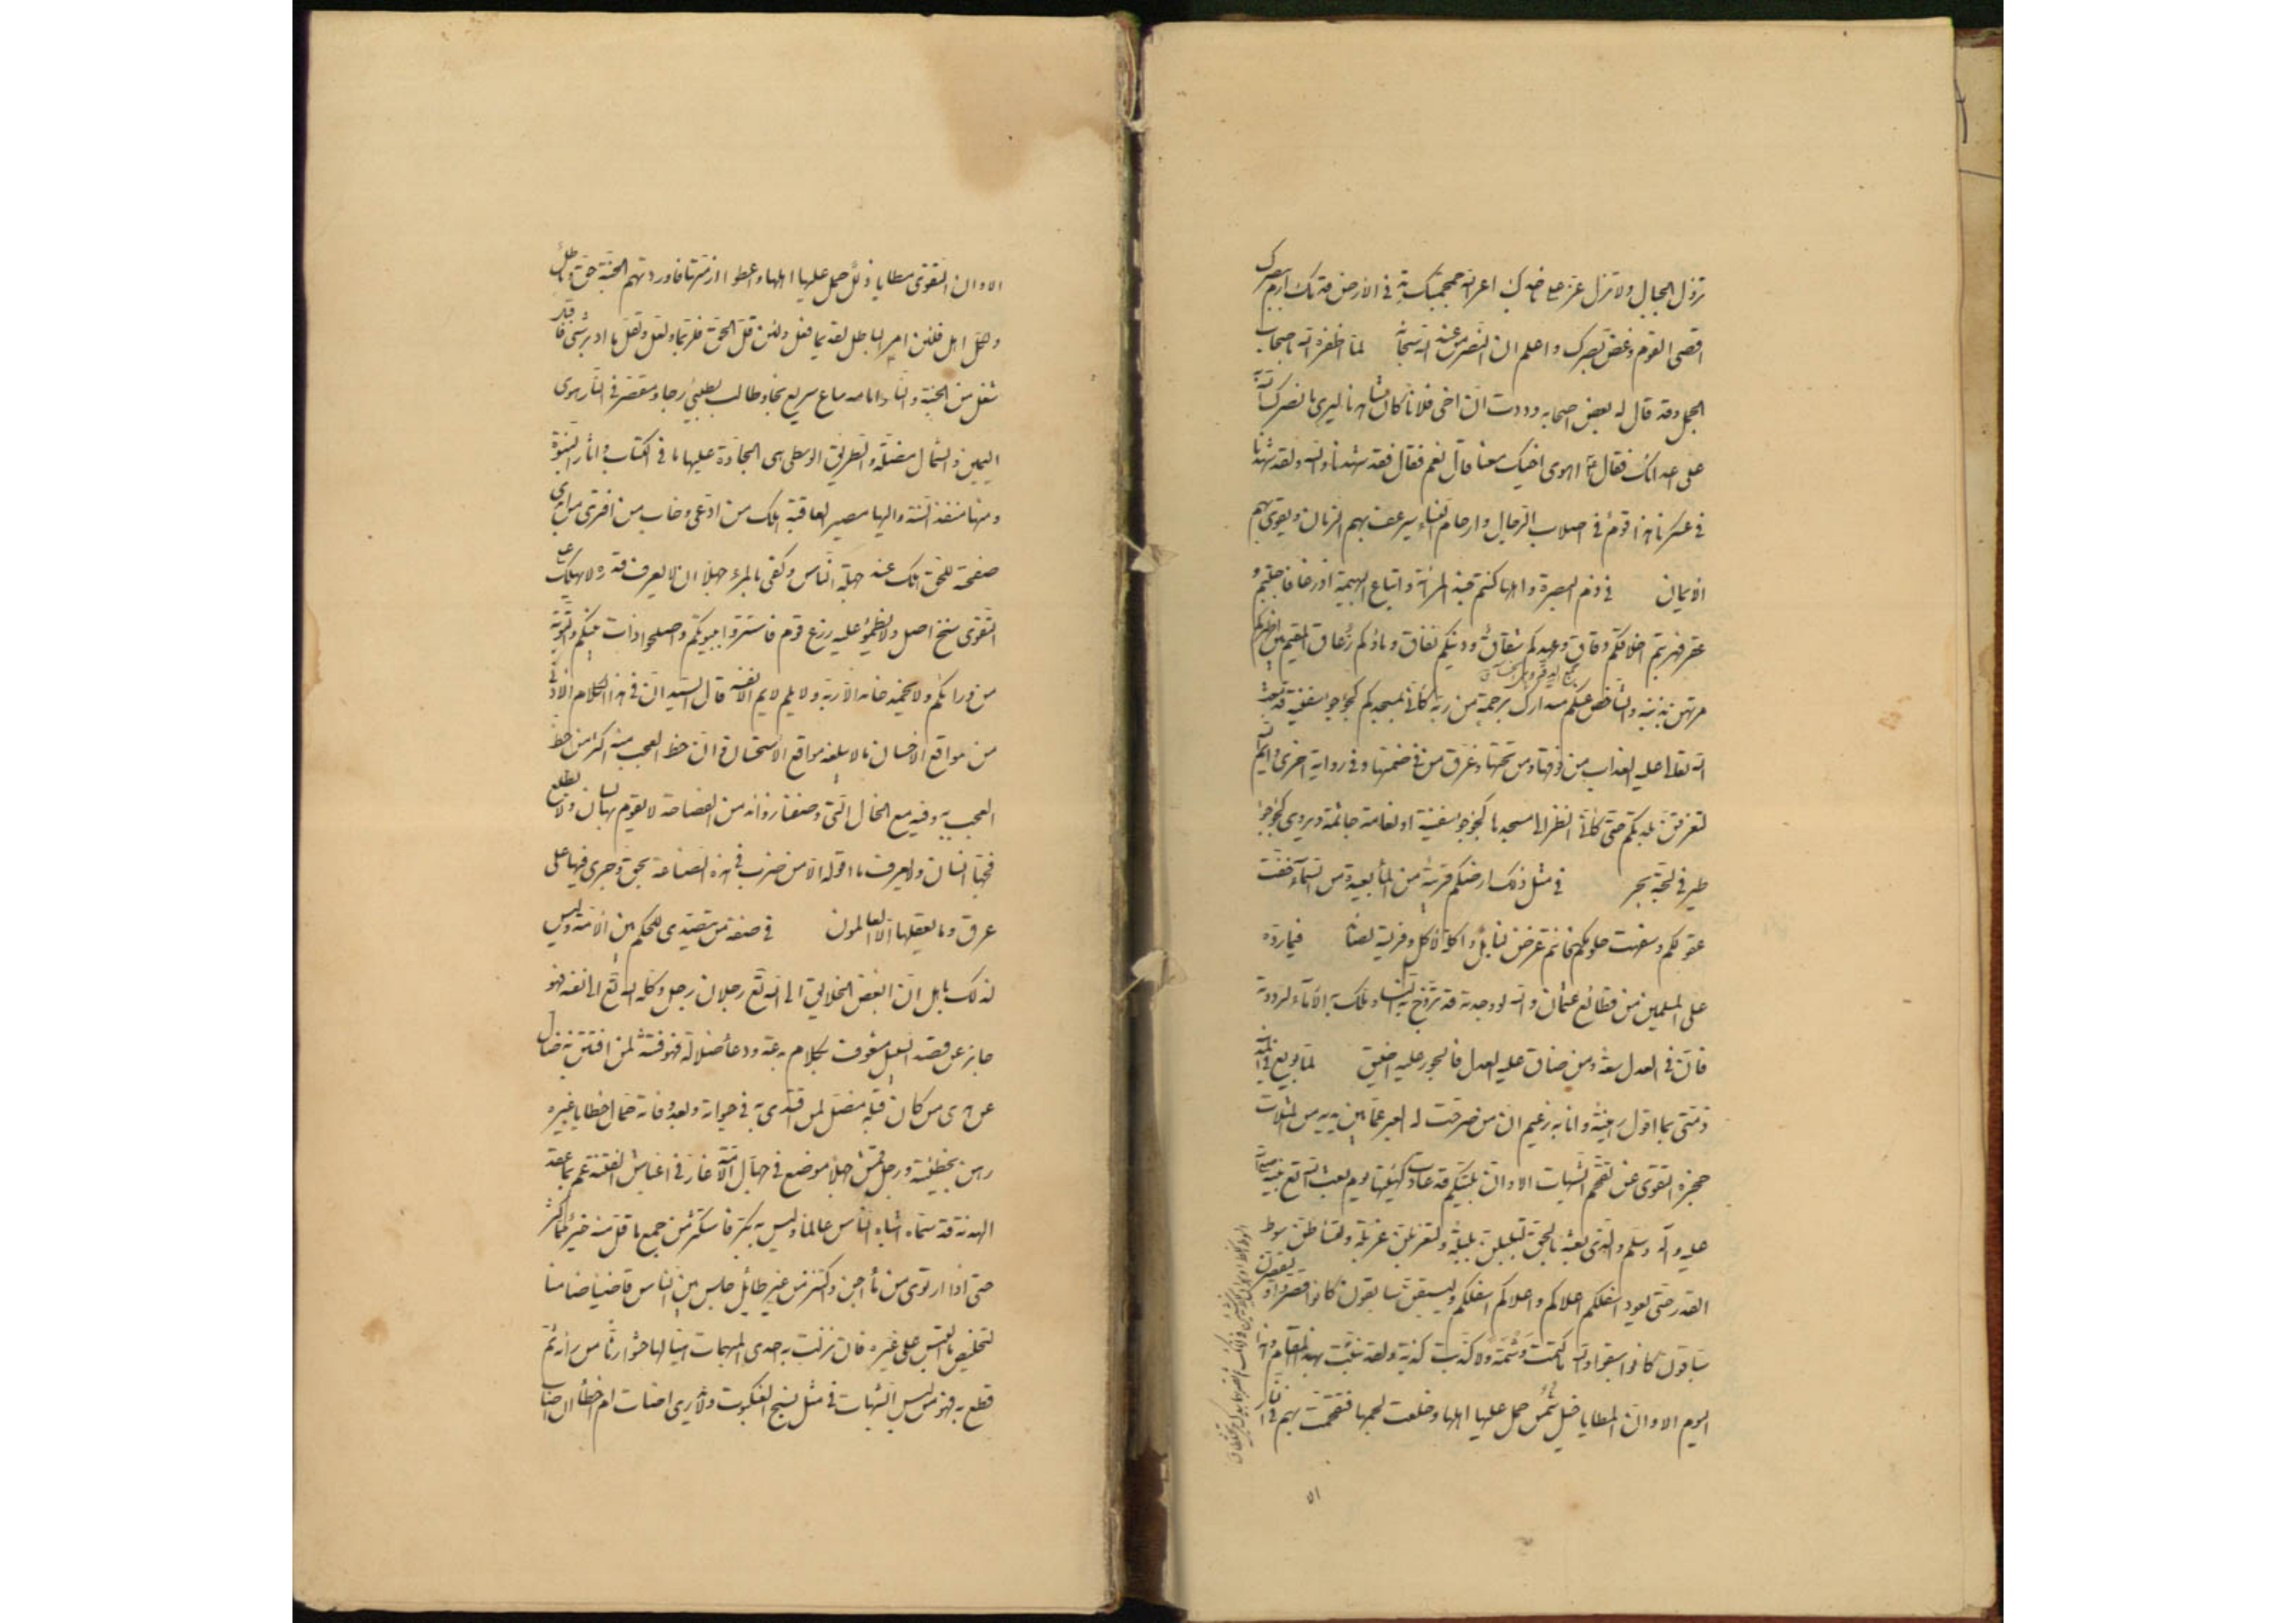 تزول الجبال ولا تزل عض على ناجذك اعر الله جمجمتك تد في الارض قدمك ارم ببصرك
اقصى القوم وغض بصرك واعلم ان النصر من عند الله سبحانه لما اظفره الله باصحاب
الجمل وقد قال له بعض اصحابه وددت ان اخي فلانا كان شاهدنا ليرى ما نصرك الله به
على اعدائك فقال ع اهوى اخيك معنا قال نعم فقال فقد شهدنا والله ولقد شهدنا
في عسكرنا هذا قوم في اصلاب الرجال وارحام النساء سيرعف بهم الزمان ويقوى بهم
الايمان في ذم البصرة واهلها كنتم جند المرأة واتباع البهيمة رغا فاجبتم و
عقر فهربتم اخلاقكم دقاق وعهدكم شقاق ودينكم نفاق وماؤكم زعاق المقيم بين اظهركم
مرتهن بذنبه والشاخص عنكم متدارك برحمة من ربه كأني بمسجدكم كجؤجؤ سفينة قد بعث
الله تعالى عليه العذاب من فوقها ومن تحتها وغرق من في ضمنها وفي رواية اخرى وايم الله
لتغرقن بلدتكم حتى كأني انظر الى مسجدها كجؤجؤ سفينة او نعامة جاثمة ويروى كجؤجؤ
طير في لجة بحر في مثل ذلك ارضكم قريبة من الماء بعيدة من السماء خفت
عقولكم وسفهت حلومكم فانتم غرض لنابل واكلة لاكل وفريسة لصائد فيما رده
على المسلمين من قطائع عثمان والله لو وجدته قد تزوج به النساء وملك به الاماء لرددته
فان في العدل سعة ومن ضاق عليه العدل فالجور عليه اضيق لما بويع في المدينة
ذمتي بما اقول رهينة وانا به زعيم ان من صرحت له العبر عما بين يديه من المثلات
حجزه التقوى عن تقحم الشبهات الا وان بليتكم قد عادت كهيئتها يوم بعث الله تع نبيه صلى الله
عليه وآله وسلم والذي بعثه بالحق لتبلبلن بلبلة ولتغربلن غربلة ولتساطن سوط
القدر حتى يعود اسفلكم اعلاكم واعلاكم اسفلكم وليسبقن سابقون كانوا قصروا وليقصرن
سباقون كانوا سبقوا والله ما كتمت وشمة ولا كذبت كذبة ولقد نبئت بهذا المقام وهذا
اليوم الا وان الخطايا خيل شمس حمل عليها اهلها وخلعت لجمها فتقحمت بهم في النار
٥١
الا وان التقوى مطايا ذلل حمل عليها اهلها واعطوا ازمتها فاوردتهم الجنة حق وباطل
ولكل اهل فلئن امر الباطل لقديما فعل ولئن قل الحق فلربما ولعل ولقل ما ادبر شيء فاقبل
شغل من الجنة والنار امامه ساع سريع نجا وطالب بطيء رجا ومقصر في النار هوى
اليمين والشمال مضلة والطريق الوسطى هي الجادة عليها ما في الكتاب واثار النبوة
ومنها منفذ السنة واليها مصير العاقبة هلك من ادعى وخاب من افترى من ابدى
صفحته للحق هلك عند جهلة الناس وكفى بالمرء جهلا ان لا يعرف قدره ولا يهلك على
التقوى سنخ اصل ولا يظمؤ عليه زرع قوم فاستتروا ببيوتكم واصلحوا ذات بينكم والتوبة
من ورائكم ولا يحمد حامد الا ربه ولا يلم لايم الا نفسه قال السيد ان في هذا الكلام الادنى
من مواقع الاحسان ما لا يبلغه مواقع الاستحسان وان حظ العجب منه اكثر من حظ
العجب به وفيه مع الحال التي وصفنا زوائد من الفصاحة لا يقوم بها لسان ولا يطلع
فجها انسان ولا يعرف ما اقوله الا من ضرب في هذه الصناعة بحق وجرى فيها على
عرق وما يعقلها الا العالمون في صفة من يتصدى للحكم بين الامة وليس
لذلك باهل ان ابغض الخلايق الى الله تع رجلان رجل وكله الله تع الى نفسه فهو
جاير عن قصد السبيل مشغوف بكلام بدعة ودعاء ضلالة فهو فتنة لمن افتتن به ضال
عن هدى من كان قبله مضل لمن اقتدى به في حيوته وبعد وفاته حمال خطايا غيره
رهن بخطيئته ورجل قمش جهلا موضع في جهال الامة غار في اغباش الفتنة عم بما في عقد
الهدنة قد سماه اشباه الناس عالما وليس به بكر فاستكثر من جمع ما قل منه خير مما كثر
حتى اذا ارتوى من ماء اجن واكتنز من غير طايل جلس بين الناس قاضيا ضامنا
لتخليص ما التبس على غيره فان نزلت به احدى المبهمات هيأ لها حشوا رثا من رأيه ثم
قطع به فهو من لبس الشبهات في مثل نسج العنكبوت ولا يدري اصاب ام اخطأ ان اصاب